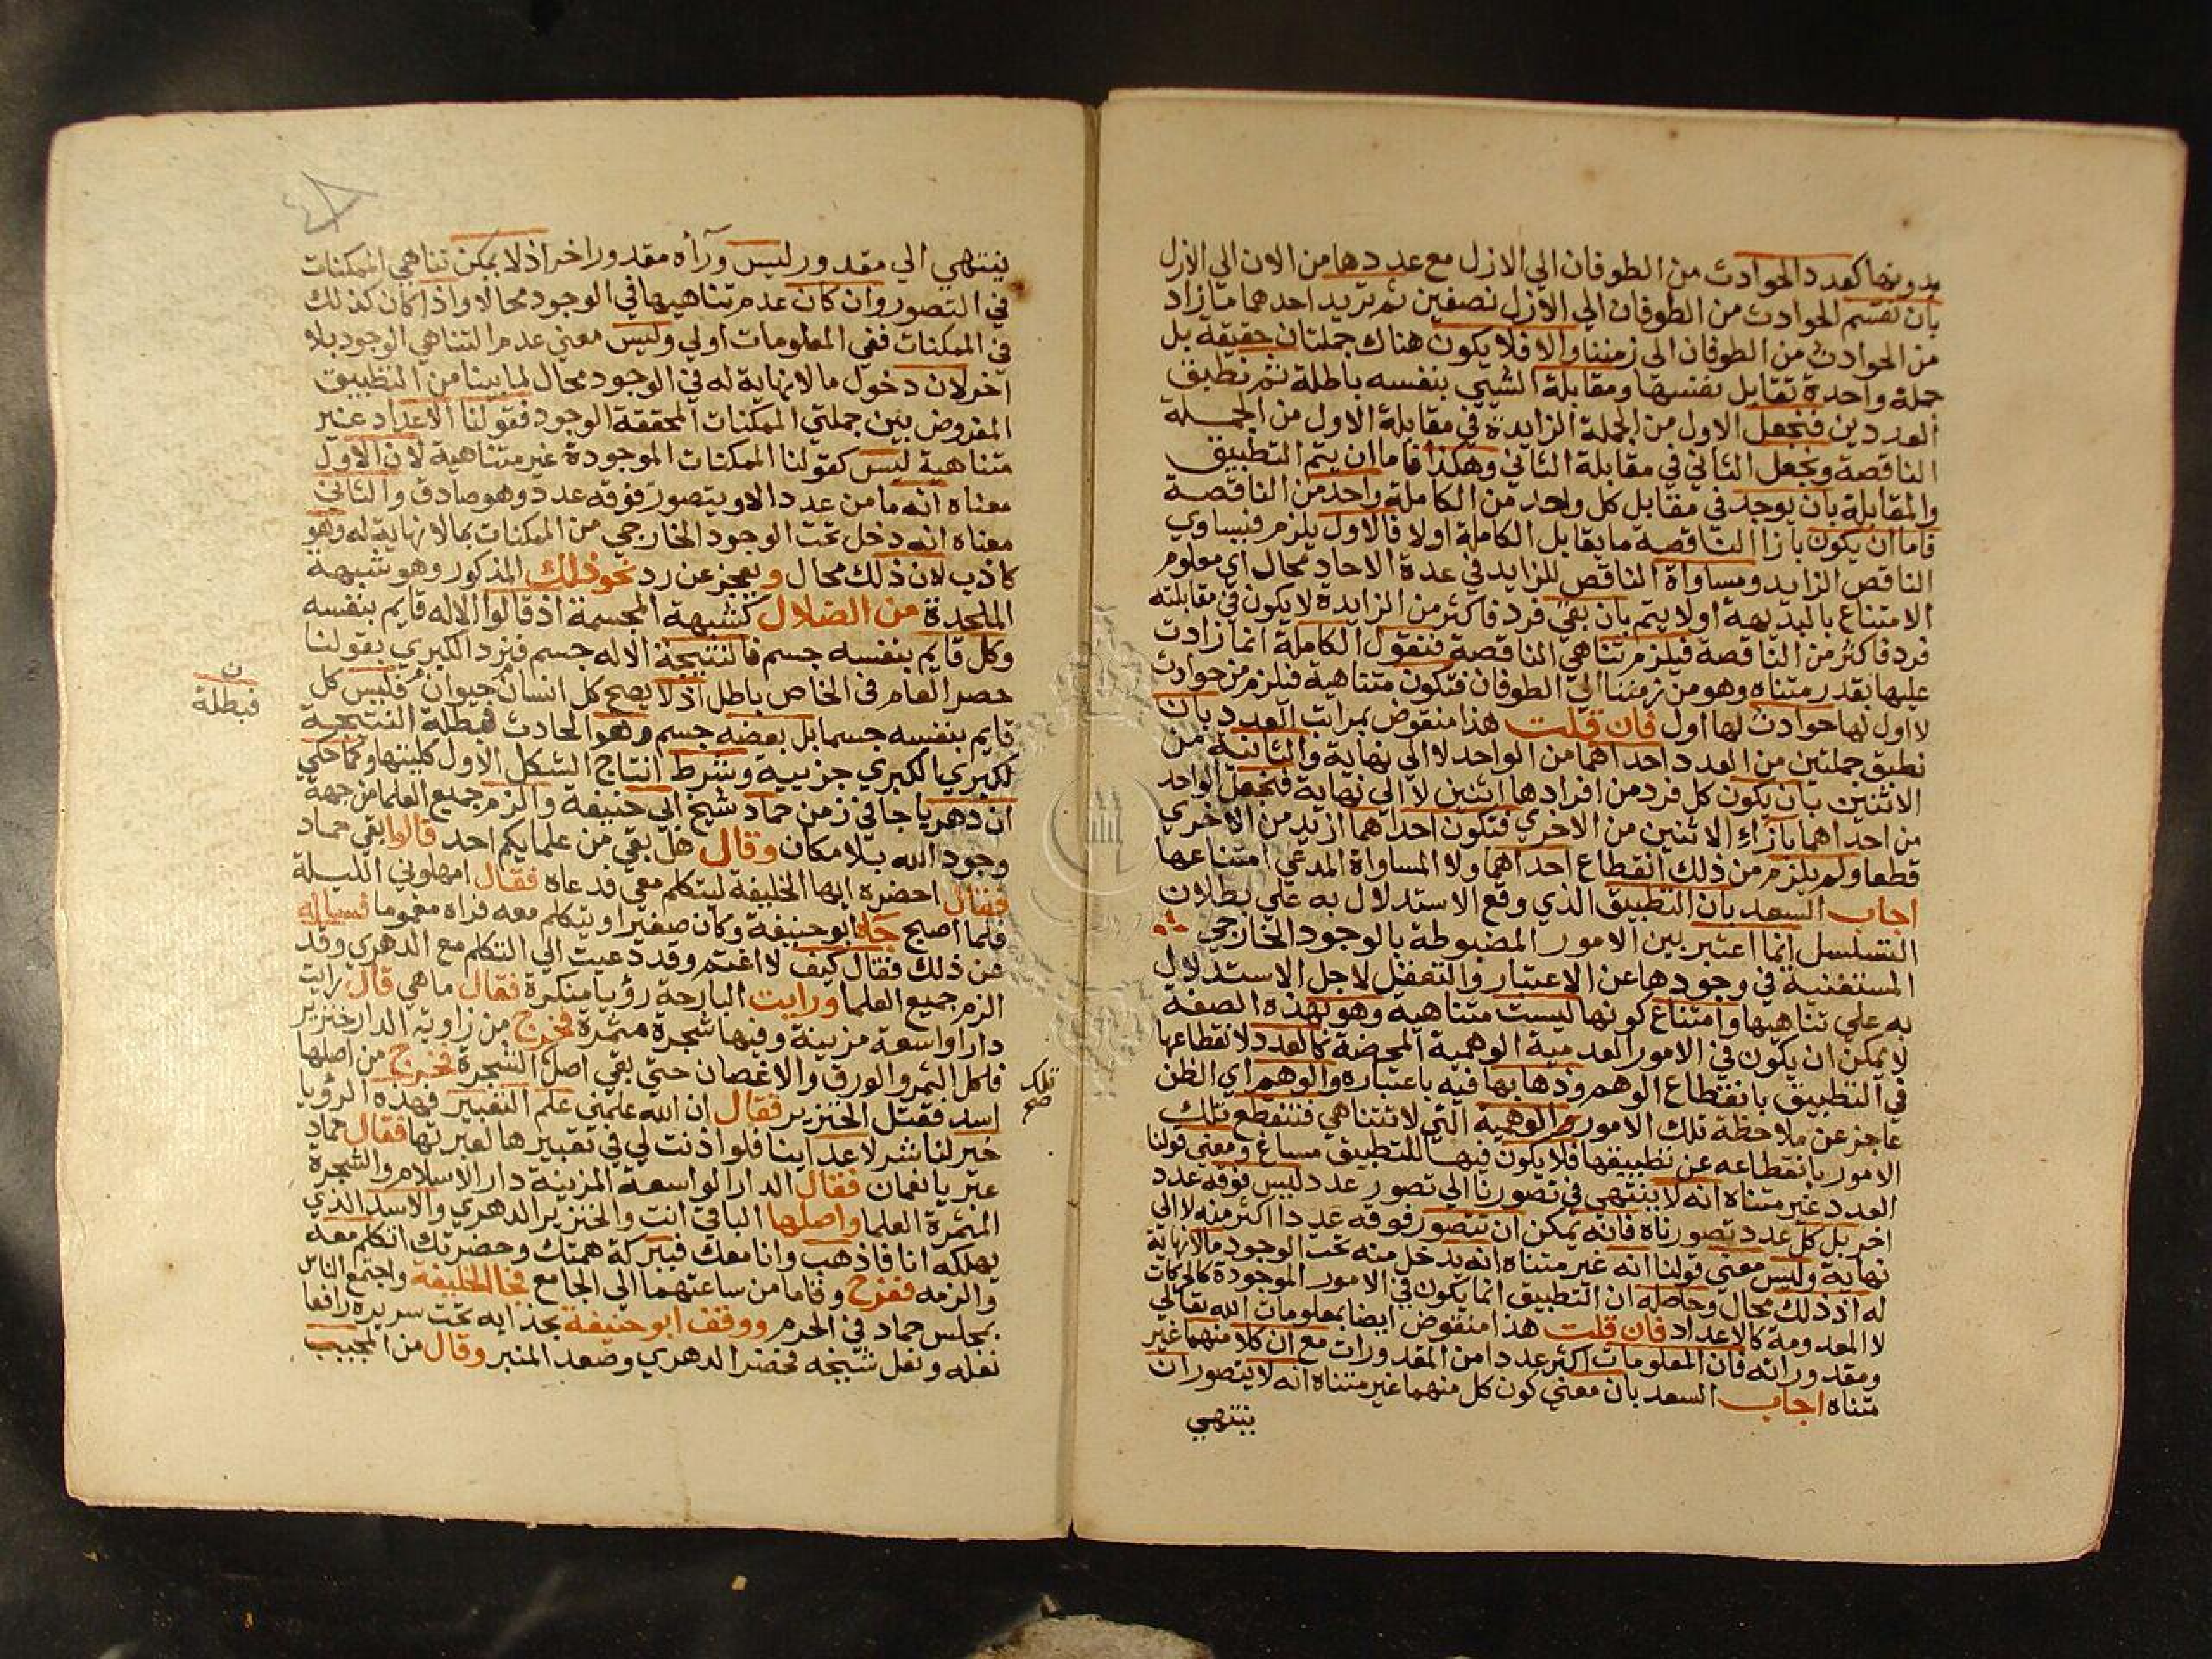 بدونها كعدد الحوادث من الطوفان الي الازل مع عددها من الان الي الازل
بان نقسم الحوادث من الطوفان الي الازل نصفين ثم تزيد احدهما ما زاد
من الحوادث من الطوفان الي زمننا والا فلا يكون هناك جملتان حقيقة بل
جملة واحدة تقابل بنفسها ومقابلة الشيي بنفسه باطلة ثم نطبق
العددين فنجعل الاول من الجملة الزايدة في مقابلة الاول من الجملة
الناقصة ونجعل الثاني في مقابلة الثاني وهكذا فاما ان يتم التطبيق
والمقابلة بان يوجد في مقابل كل واحد من الكاملة واحد من الناقصة
فاما ان يكون بازا الناقصة ما يقابل الكاملة اولا فالاول يلزم فيساوي
الناقص الزايد ومساواة الناقص للزايد في عدة الاحاد محال اي معلوم
الامتناع بالبديهة اولا يتم بان بقي فرد فاكثر من الزايدة لا يكون في مقابلته
فرد فاكثر من الناقصة فيلزم تناهي الناقصة فنقول الكاملة انما زادت
عليها بقدر متناه وهو من زمننا الي الطوفان فتكون متناهية فيلزم من حوادث
لا اول لها حوادث لها اول فان قلت هذا منقوض بمراتب العدد بان
نطبق جملتين من العدد احداهما من الواحد لا الي نهاية والثانية من
الاثنين بان يكون كل فرد من افرادها اثنين لا الي نهاية فنجعل الواحد
من احداهما بازاء الاثنين من الاخري فتكون احداهما ازيد من الاخري
قطعا ولم يلزم من ذلك انقطاع احداهما ولا المساواة المدعي امتناعها
اجاب السعد بان التطبيق الذي وقع الاستدلال به علي بطلان
التسلسل انما اعتبر بين الامور المضبوطة بالوجود الخارجي
المستغنية في وجودها عن الاعتبار والتعقل لاجل الاستدلال
به علي تناهيها وامتناع كونها ليست متناهية وهو بهذه الصفة
لا يمكن ان يكون في الامور العدمية الوهمية المحضة كالعدد لانقطاعها
في التطبيق بانقطاع الوهم وذهابها فيه باعتباره والوهم اي الظن
عاجز عن ملاحظة تلك الامور الوهمية التي لا تتناهي فتنقطع تلك
الامور بانقطاعه عن تطبيقها فلا يكون فيها للتطبيق مساغ ومعني قولنا
العدد غير متناه انه لا ينتهي في تصورنا الي تصور عدد ليس فوقه عدد
اخر بل كل عدد تصورناه فانه يمكن ان نتصور فوقه عددا اكثر منه لا الي
نهاية وليس معني قولنا انه غير متناه انه يدخل منه تحت الوجود ما لا نهاية
له اذ ذلك محال وحاصله ان التطبيق انما يكون في الامور الموجودة كالحركات
لا المعدومة كالاعداد فان قلت هذا منقوض ايضا بمعلومات الله تعالي
ومقدوراته فان المعلومات اكثر عددا من المقدورات مع ان كلا منهما غير
متناه اجاب السعد بان معني كون كل منهما غير متناه انه لا يتصور ان
ينتهي
ينتهي الي مقدور ليس ورآه مقدورا خر اذ لا يمكن تناهي الممكنات
في التصور وان كان عدم تناهيها في الوجود محالا واذا كان كذلك
في الممكنات ففي المعلومات اولي وليس معني عدم التناهي الوجود بلا
اخر لان دخول ما لا نهاية له في الوجود محال لما بينا من التطبيق
المفروض بين جملتي الممكنات المحققة الوجود فقولنا الاعداد غير
متناهية ليس كقولنا الممكنات الموجودة غير متناهية لان الاول
معناه انه ما من عدد الا ويتصور فوقه عدد وهو صادق والثاني
معناه انه دخل تحت الوجود الخارجي من الممكنات بما لا نهاية له وهو
كاذب لان ذلك محال ويعجز عن رد نحو ذلك المذكور وهو شبهة
الملحدة من الضلال كشبهة المجسمة اذ قالوا الاله قايم بنفسه
وكل قايم بنفسه جسم فالنتيجة الاله جسم فيرد الكبري بقولنا
حصر العام في الخاص باطل اذ لا يصح كل انسان حيوان فليس كل
قايم بنفسه جسما بل بعضه جسم وهو الحادث فبطلة النتيجة
ن
فبطلة
لكبري الكبري جزيية وشرط انتاج الشكل الاول كليتها وكما حكي
ان دهريا جا في زمن حماد شيخ ابي حنيفة والزم جميع العلما من جهة
وجود الله بلا مكان وقال هل بقي من علمايكم احد قالوا بقي حماد
فقال احضره ايها الخليفة ليتكلم معي فدعاه فقال امهلوني الليلة
فلما اصبح جاه ابو حنيفة وكان صغيرا ويتكلم معه فراه مغموما فساله
عن ذلك فقال كيف لا اغتم وقد دعيت الي التكلم مع الدهري وقد
الزم جميع العلما ورايت البارحة رؤيا منكرة فقال ما هي قال رايت
دارا واسعة مزينة وفيها شجرة مثمرة فخرج من زاوية الدار خنزير
فاكل الثمر والورق والاغصان حتي بقي اصل الشجرة فخرج من اصلها
اسد فقتل الخنزير فقال ان الله علمني علم التعبير فهذه الرؤيا
خير لنا شر لاعداينا فلو اذنت لي في تعبيرها لعبرتها فقال حماد
عبر يا نعمان فقال الدار الواسعة المزينة دار الاسلام والشجرة
المثمرة العلما واصلها الباقي انت والخنزير الدهري والاسد الذي
يهلكه انا فاذهب وانا معك فببركة همتك وحضرتك اتكلم معه
والزمه ففرح وقاما من ساعتهما الي الجامع فجا الخليفة واجتمع الناس
بمجلس حماد في الحرم ووقف ابو حنيفة بحذايه تحت سريره رافعا
نعله ونعل شيخه فحضر الدهري وصعد المنبر وقال من المجيب